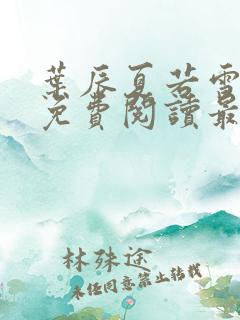 葉辰夏若雪
免費閱讀最
林殊途
未经同意禁止转载